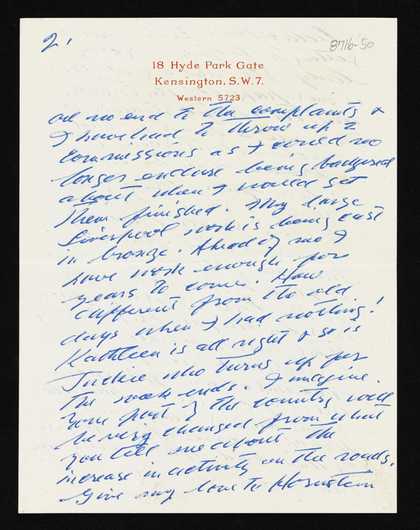 2.
8716-50
18 Hyde Park Gate
Kensington. S.W.7.
Western 5723
are no end to the complaints &
I have had to throw up 2
commissions as I could no
longer endure being badgered
about when I would get
them finished. My large
Liverpool work is being cast
in bronze. Ahead of me I
have work enough for
years to come. How
different from the old
days when I had nothing!
Kathleen is all right & so is
Jackie who turns up for
the week ends. I imagine
your part of the country will
be very changed from what
you tell me about the
increase in activity on the roads.
Give my love to Hornstein